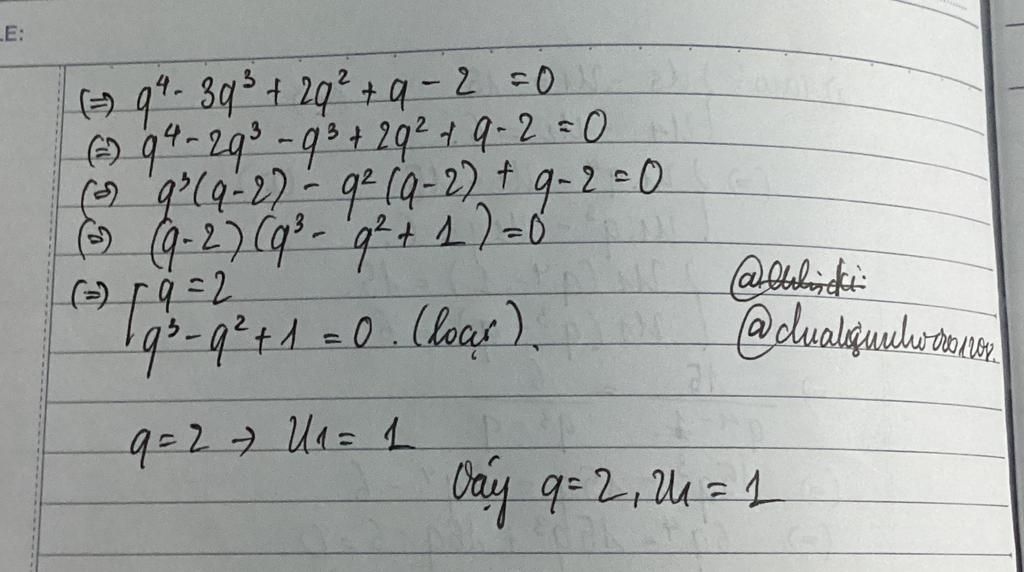 E:
(=) q⁴ - 3q³ + 2q² + q - 2 = 0
(=) q⁴ - 2q³ - q³ + 2q² + q - 2 = 0
(=) q³(q-2) - q²(q-2) + q-2 = 0
(=) (q-2)(q³ - q² + 1) = 0
(=) [ q = 2
q³ - q² + 1 = 0. (loại).
q = 2 → U1 = 1
Vậy q = 2, U1 = 1